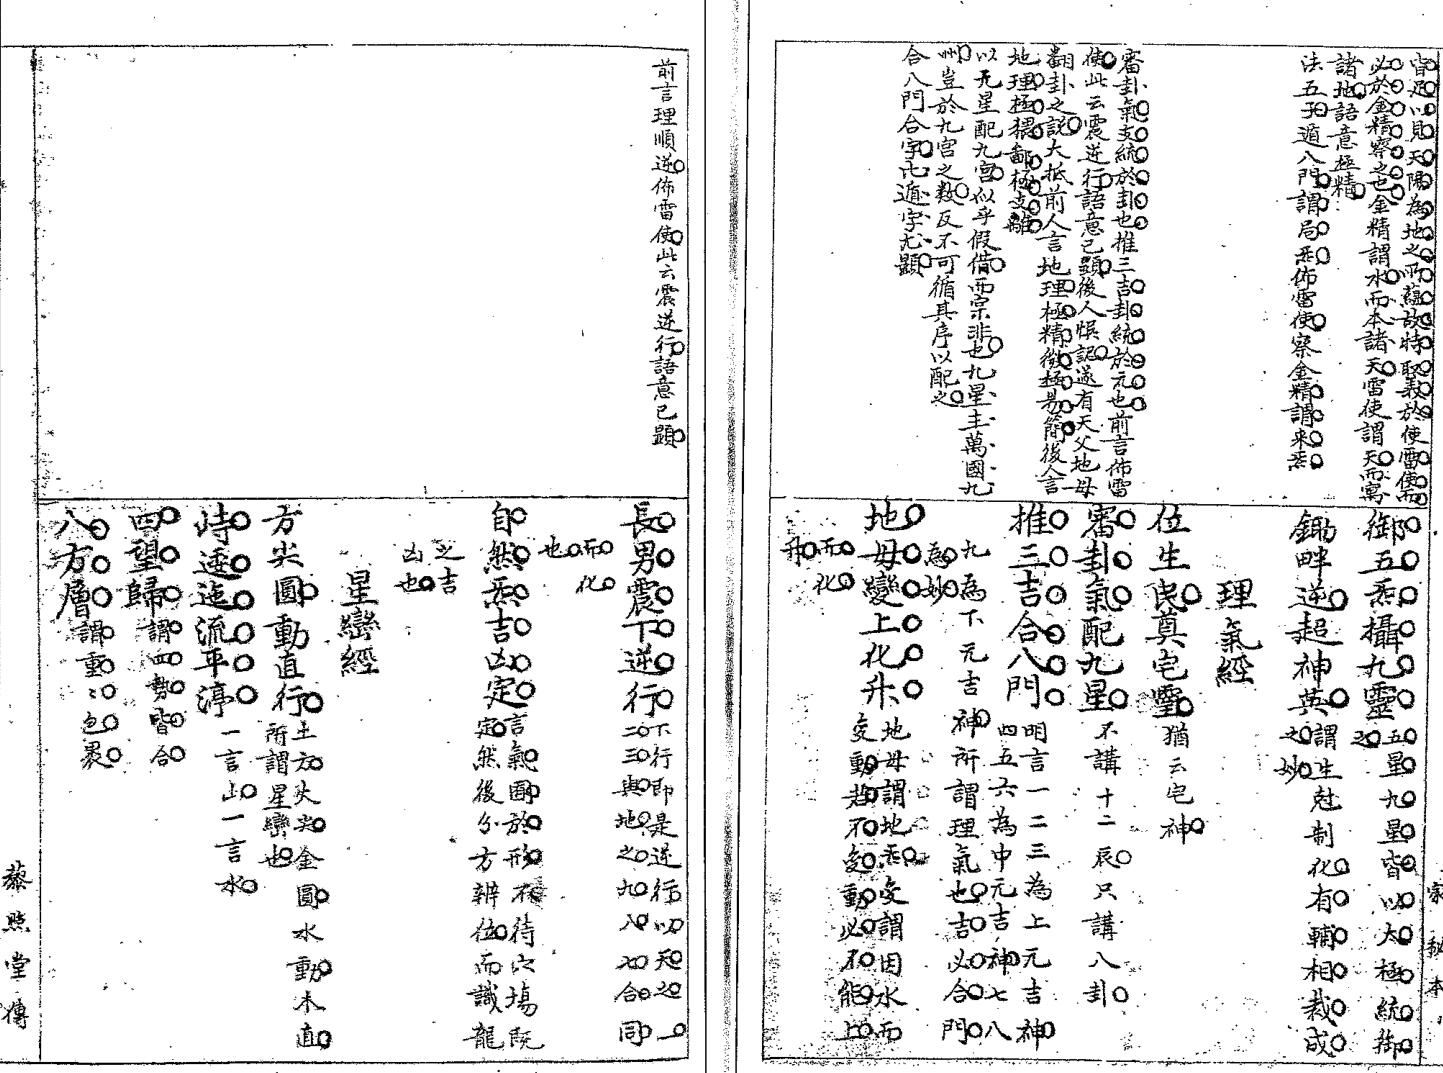 皆足以見天陽為地之所蘊故特取義於使雷使而
必於金精察之也金精謂水而本諸天雷使謂天而寓
諸地語意極精
法五子遁八門謂局炁佈雷使察金精謂来炁
審卦氣支統於卦也推三吉卦統於元也前言佈雷
使此云震逆行語意已顯後人悞認遂有天父地母
翻卦之説大抵前人言地理極精微極易簡後人言
地理極猥鄙極支離
以九星配九宫似乎假借而宗非也九星主萬國九
州豈於九宫之数反不可循其序以配之
合八門合字比遁字尤顯
御五炁攝九靈五星九星皆以太極統御
之
鋤畔逆超神英謂生尅制化有輔相裁成
之妙
理氣經
位生曳奠宅靈猶云宅神
審卦氣配九星不講十二辰只講八卦
推三吉合八門明言一二三為上元吉神
四五六為中元吉神七八
九為下元吉神所謂理氣也吉必合門
為妙
地母變上化升地母謂地炁变謂因水而
变動趋不变動必不能上
而化
升
家秘本
前言理順逆佈雷使此云震逆行語意已顯
長男震下逆行下行即是逆行以天之一
二三與地之九八七合同
而化
也
自然炁吉凶定言氣囿於形不待穴塲既
定然後分方辨位而識龍
之吉
凶也
星巒經
方尖圓動直行土方火尖金圓水動木直
所謂星巒也
峙逶迤流平渟一言山一言水
四望歸謂四勢皆合
八方層謂重〻包裹
藜照堂傳